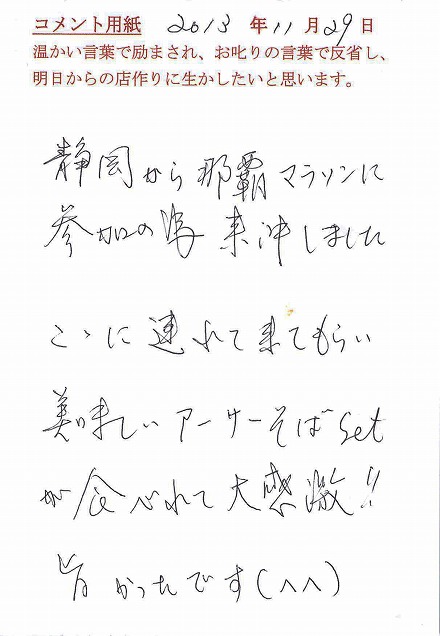 コメント用紙 2013年11月29日
温かい言葉で励まされ、お叱りの言葉で反省し、
明日からの店作りに生かしたいと思います。
静岡から那覇マラソンに
参加の為来沖しました
こゝに連れて来てもらい
美味しいアーサーそばset
が食べれて大感激!!
旨かったです(^^)